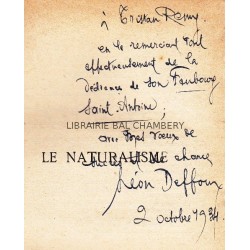 à Tristan Remy
en le remerciant tout
affectueusement de la
dédicace de son Faubourg
Saint Antoine,
LIBRAIRIE BAL CHAMBERY
avec mes vœux de
LE NATURALISME
de chance
Léon Deffoux
2 octobre 1934